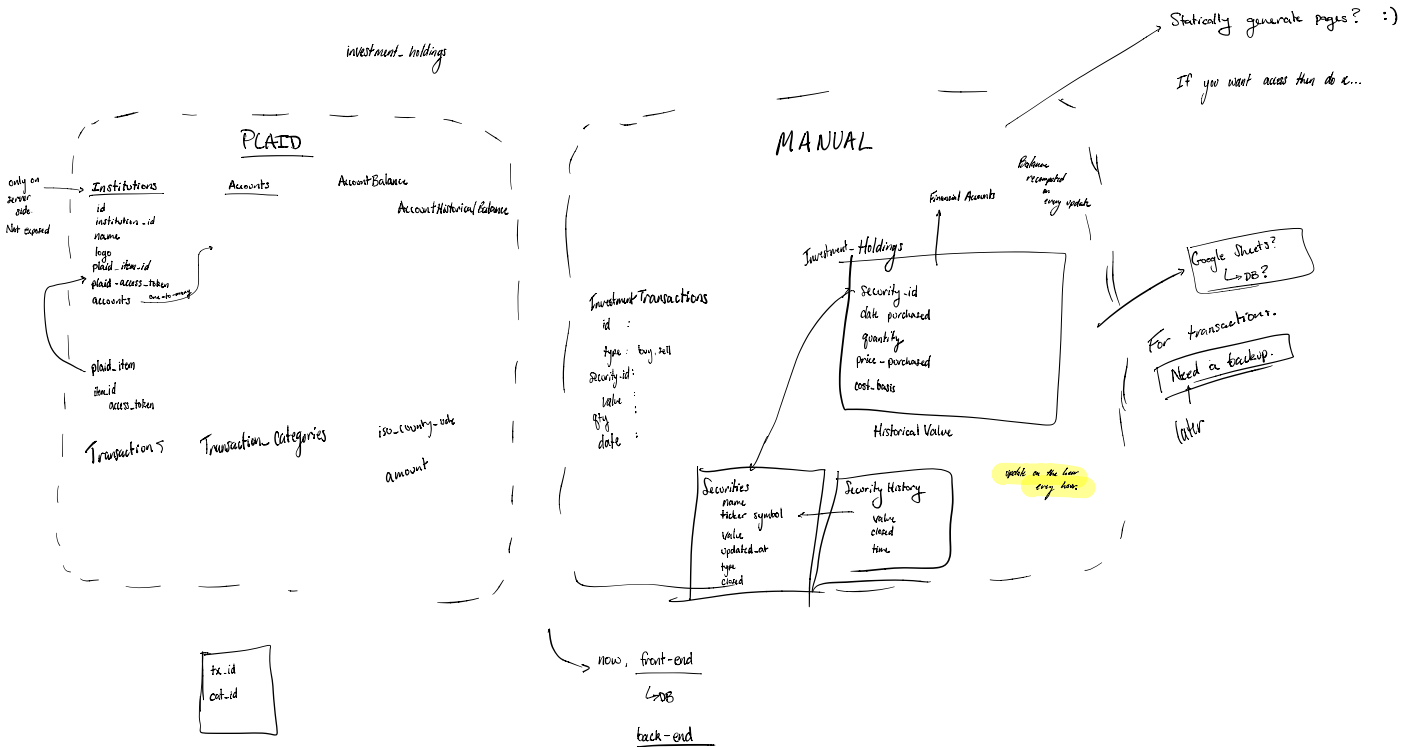 Statically generate pages? :)
If you want access then do a...
investment_holdings
PLAID
only on
server
side.
Not exposed
Institutions
id
institution_id
name
logo
plaid_item_id
plaid_access_token
accounts one-to-many
Accounts
AccountBalance
AccountHistoricalBalance
plaid_item
item_id
access_token
Transactions
Transaction_Categories
amount
MANUAL
Balance
recomputed
on
every update
Financial Accounts
Investment_Holdings
security_id
date purchased
quantity
price_purchased
cost_basis
Historical Value
Investment Transactions
id :
type : buy, sell
security_id :
value :
qty :
date :
Securities
name
ticker symbol
value
updated_at
type
closed
Security History
value
closed
time
update on the hour
every hour.
Google Sheets?
↳DB?
For transactions.
Need a backup.
later
tx_id
cat_id
now, front-end
↳DB
back-end